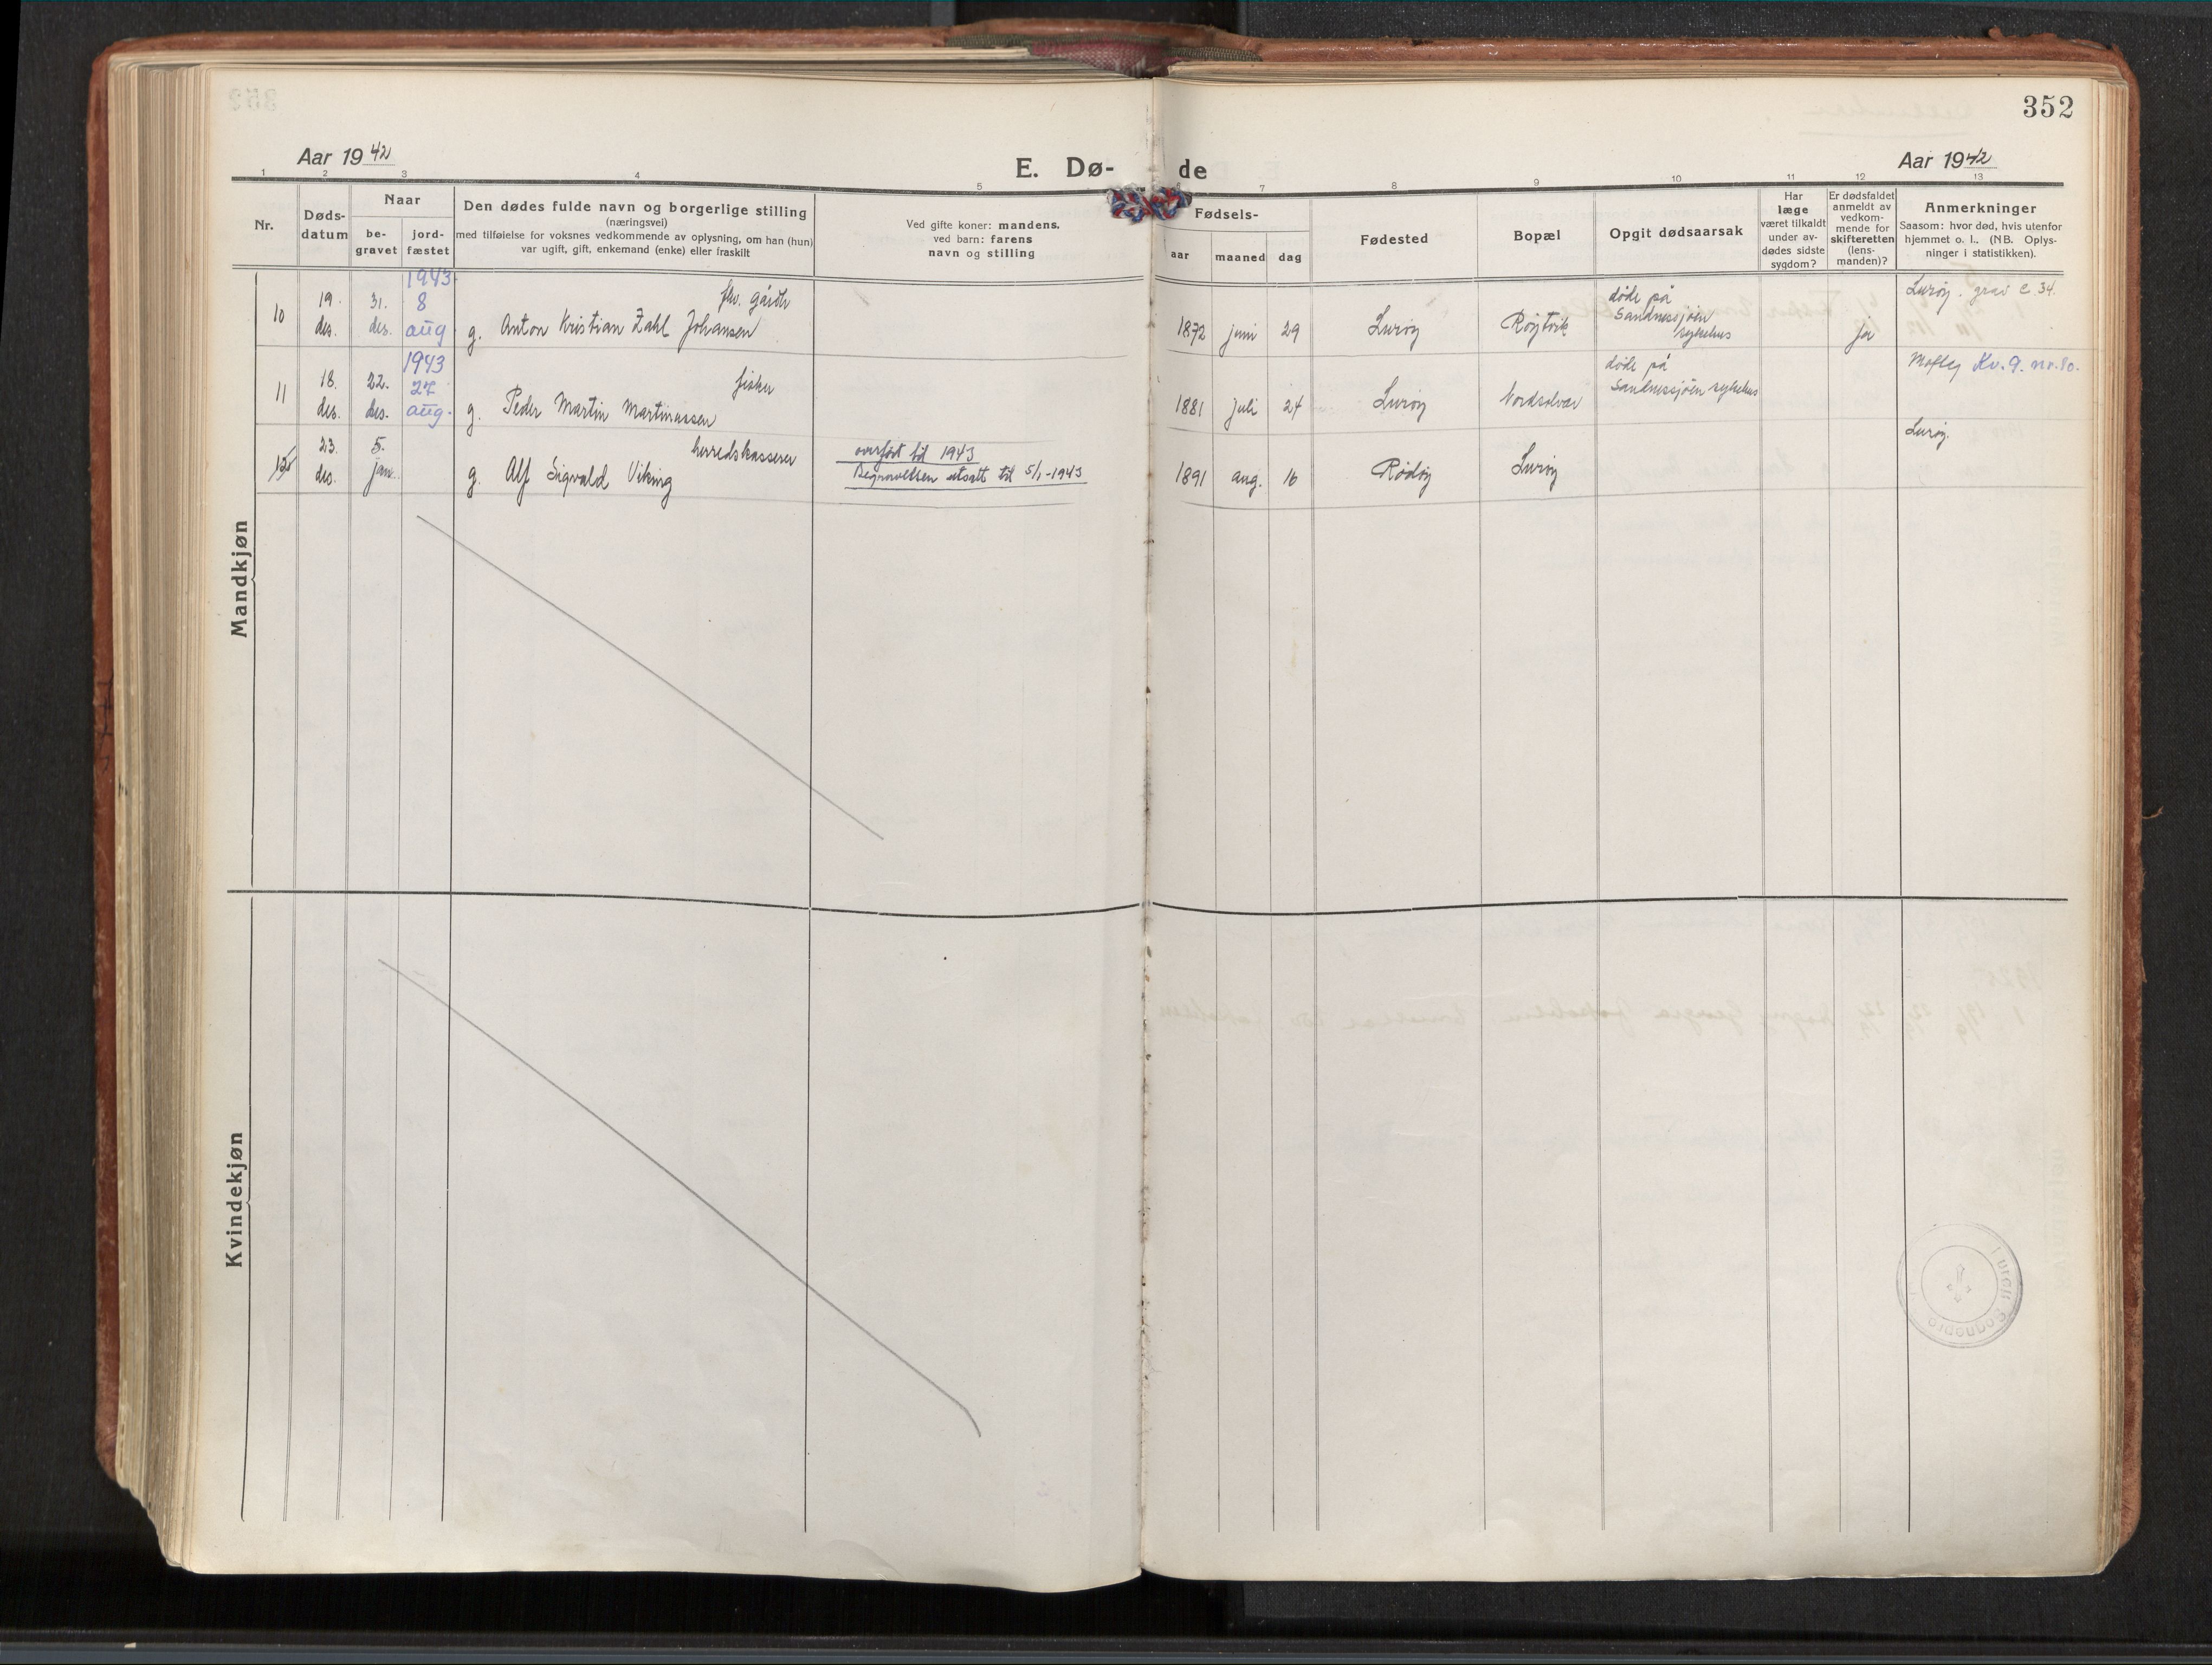 352
Aar 1942
E. Dø-
de
Aar 1942
1 2 3 4 5 6 7 8 9 10 11 12 13
Nr.
Døds-
datum
Naar
be-
gravet
jord-
fæstet
Den dødes fulde navn og borgerlige stilling
(næringsvei)
med tilføielse for voksnes vedkommende av oplysning, om han (hun)
var ugift, gift, enkemand (enke) eller fraskilt
Ved gifte koner: mandens.
ved barn: farens
navn og stilling
Fødsels-
aar
maaned
dag
Fødested
Bopæl
Opgit dødsaarsak
Har
læge
været tilkaldt
under av-
dødes sidste
sygdom?
Er dødsfaldet
anmeldt av
vedkom-
mende for
skifteretten
(lens-
manden)?
Anmerkninger
Saasom: hvor død, hvis utenfor
hjemmet o. l.. (NB. Oplys-
ninger i statistikken).
Mandkjøn
10
19.
des.
31.
des.
1943
8
aug
fhv. gårdbr
g. Anton Kristian Zahl Johansen
1872 juni 29
Lurøy
døde på
Sandnessjøen
sykehus
ja
Lurøy. grav C 34.
11
18.
des.
22.
des.
1943
27
aug.
fisker
g. Peder Martin Martinussen
1881 juli 24
Lurøy
Nordsolvær
døde på
Sandnessjøen sykehus
Kv. 9. nr. 80.
12
23.
des.
5.
jan.
herredskasserer
g. Alf Sigvald Viking
overført til 1943
Begravelsen utsatt til 5/1-1943
1891 aug. 16
Rødøy
Lurøy
Lurøy.
Kvindekjøn